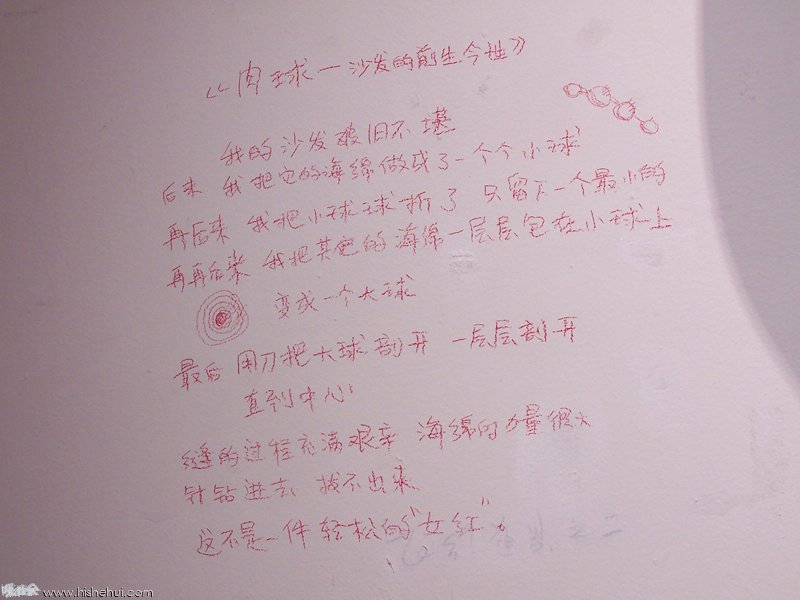 《肉球—沙发的前生今世》
我的沙发破旧不堪
后来 我把它的海绵做成了一个个小球
再后来 我把小球球拆了 只留下一个最小的
再再后来 我把其它的海绵一层层包在小球上
变成一个大球
最后 用刀把大球剖开 一层层剖开
直到中心
缝的过程充满艰辛 海绵的力量很大
针钻进去 拔不出来
这不是一件轻松的“女红”。
www.hishehui.com